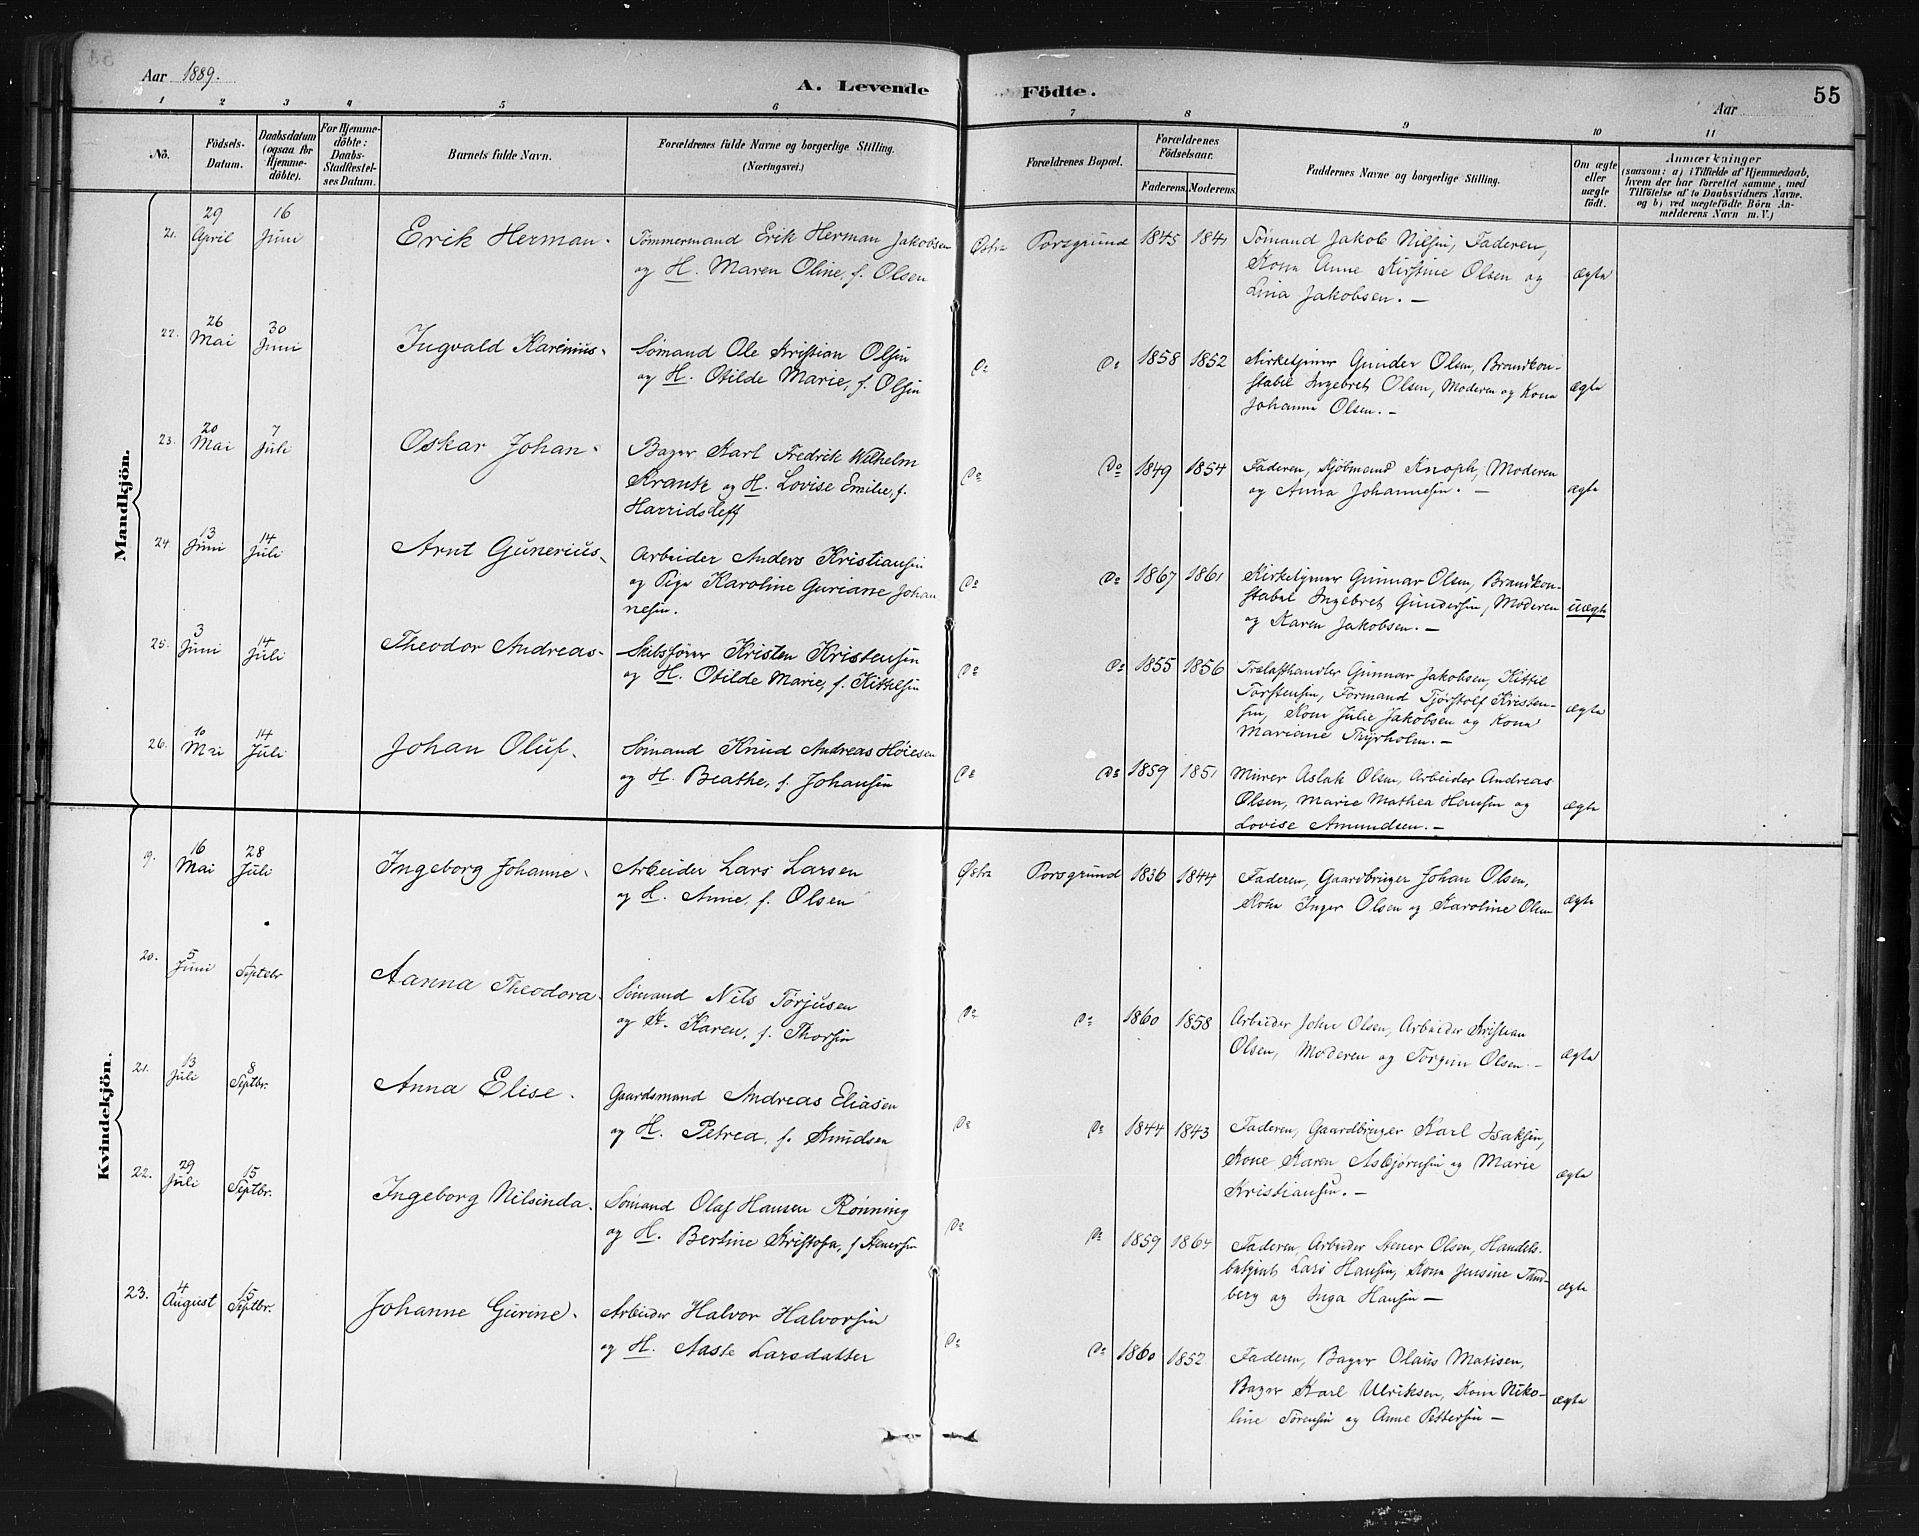 Aar 1889.
A. Levende Födte.
Aar
55
1 2 3 4 5 6 7 8 9 10 11
No.
Födsels-Datum.
Daabsdatum (ogsaa for Hjemme-döbte).
For Hjemme-döbte: Daabs-Stadfæstel-ses Datum.
Barnets fulde Navn.
Forældrenes fulde Navne og borgerlige Stilling. (Næringsvei.)
Forældrenes Bopæl.
Forældrenes Födselsaar.
Faderens. Moderens.
Faddernes Navne og borgerlige Stilling.
Om ægte eller uægte födt.
Anmærkninger
(saasom: a) i Tilfælde af Hjemmedaab,
hvem der har forrettet samme, med
Tilföielse af to Daabsvidners Navne,
og b) ved uægtefödte Börn An-
melderens Navn m. V.)
Mandkjön.
21. 29 April 16 Juni Erik Herman. Tømmermand Erik Herman Jakobsen Østre Porsgrund 1845 1841 Sømand Jakob Nilsen, Faderen,
og H. Maren Oline, f. Olsen Kona Anne Kirstine Olsen og ægte
Lina Jakobsen. —
22. 26 Mai 30 Juni Ingvald Karenius. Sømand Ole Kristian Olsen Do Do 1858 1852 Kirketjener Gunder Olsen, Brandkon-
og H. Otilde Marie, f. Olsen stabel Ingebret Olsen, Moderen og Kona ægte
Johanna Olsen. —
23. 20 Mai 7 Juli Oskar Johan. Bager Karl Fredrik Wilhelm Do Do 1849 1854 Faderen, Kjøbmand Knoph, Moderen
Krantz og H. Lovise Emilie, f. og Anna Johannesen. — ægte
Harridsleff
24 13 Juni 14 Juli Arnt Gunerius. Arbeider Anders Kristiansen Do Do 1867 1861 Kirketjener Gunnar Olsen, Brandkon-
og Pige Karoline Guriane Johan stabel Ingebret Gundersen, Moderen uægte
nesen. og Karen Jakobsen. —
25. 3 Juni 14 Juli Theodor Andreas. Skibsfører Kristen Kristensen Do Do 1855 1856 Trælasthandler Gunnar Jakobsen, Kittil
og H. Otilde Marie, f. Kittelsen Torstensen, Formand Tjøstolf Kristen-
sen, Kona Julie Jakobsen og Kona ægte
Mariane Thyrholm. —
26. 10 Mai 14 Juli Johan Oluf. Sømand Knud Andreas Høiesen Do Do 1859 1851 Murer Aslak Olsen, Arbeider Andreas
og H. Beathe, f. Johansen Olsen, Marie Mathea Hansen og ægte
Lovise Amundsen. —
Kvindekjön.
19. 16 Mai 28 Juli Ingeborg Johanne. Arbeider Lars Larsen Østre Porsgrund 1836 1844 Faderen, Gaardbruger Johan Olsen,
og H. Anne, f. Olsen Kona Inger Olsen og Karoline Olsen ægte
20. 5 Juni 1 Septbr Aanna Theodora. Sømand Nils Torjusen Do Do 1860 1858 Arbeider John Olsen, Arbeider Kristian
og H. Karen, f. Thorsen Olsen, Moderen og Torgun Olsen. — ægte
21. 13 Juli 8 Septbr. Anna Elise. Gaardsmand Andreas Eliasen Do Do 1844 1843 Faderen, Gaardbruger Karl Isaksen,
og H. Petrea, f. Knudsen Kone Karen Asbjørnsen og Marie ægte
Kristiansen. —
22. 29 Juli 15 Septbr. Ingeborg Nilsinda. Sømand Olaf Hansen Rønning Do Do 1859 1864 Faderen, Arbeider Stener Olsen, Handels-
og H. Bertine Kristofa, f. Stenersen betjent Lars Hansen, Kona Jensine Tand-
berg og Inga Hansen — ægte
23. 4 August 15 Septbr. Johanne Gurine. Arbeider Halvor Halvorsen Do Do 1860 1852. Faderen, Bager Olaus Matisen,
og H. Aaste Larsdatter Bager Karl Ulriksen, Kona Niko- ægte
line Sørensen og Anne Pettersen —